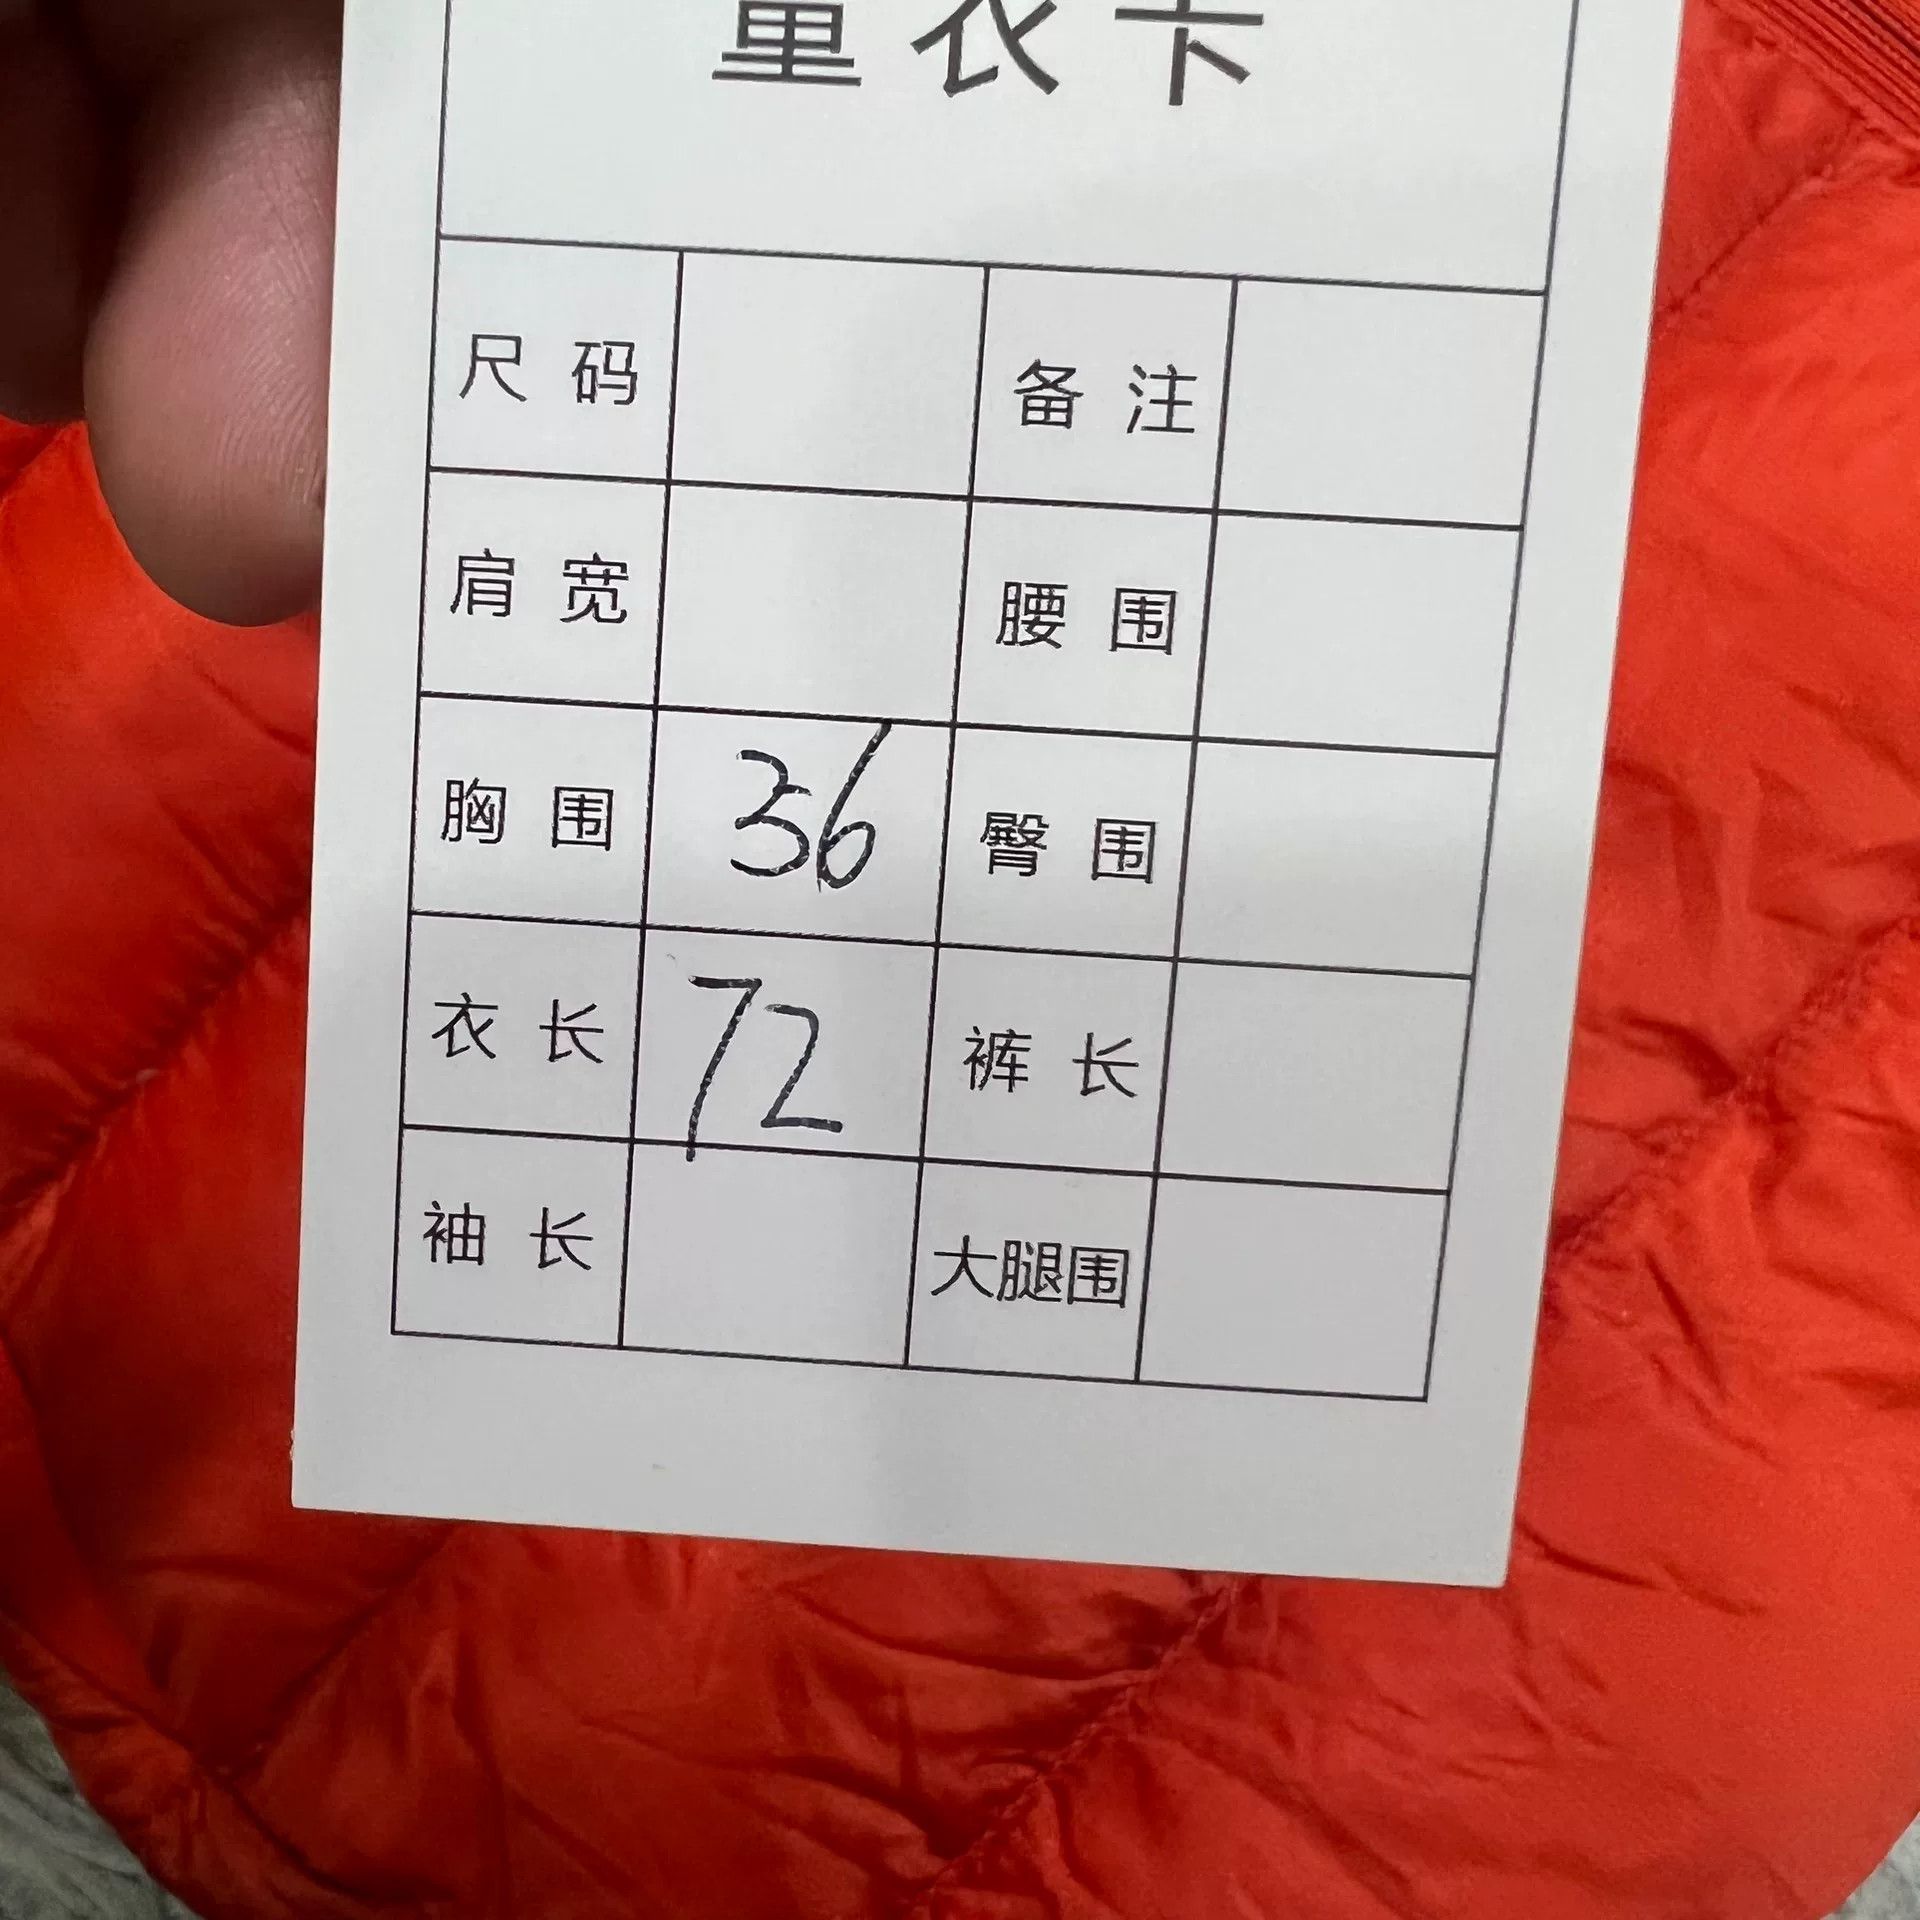 量衣卡
尺码 备注
肩宽 腰围
胸围 56 臀围
衣长 72 裤长
袖长 大腿围